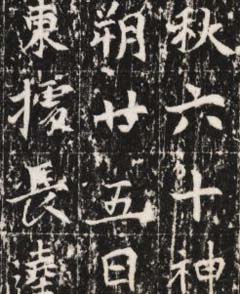 秋六十神
朔廿五日
東據長